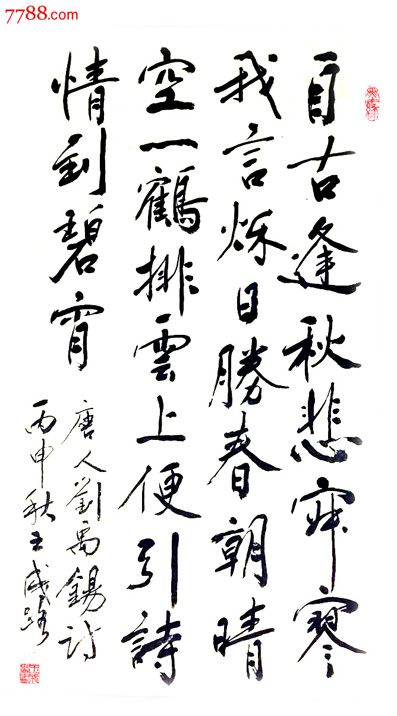 7788.com
自古逢秋悲寂寥
我言秌日勝春朝晴
空一鶴排雲上便引詩
情到碧霄
唐人劉禹錫詩
丙申秋王成